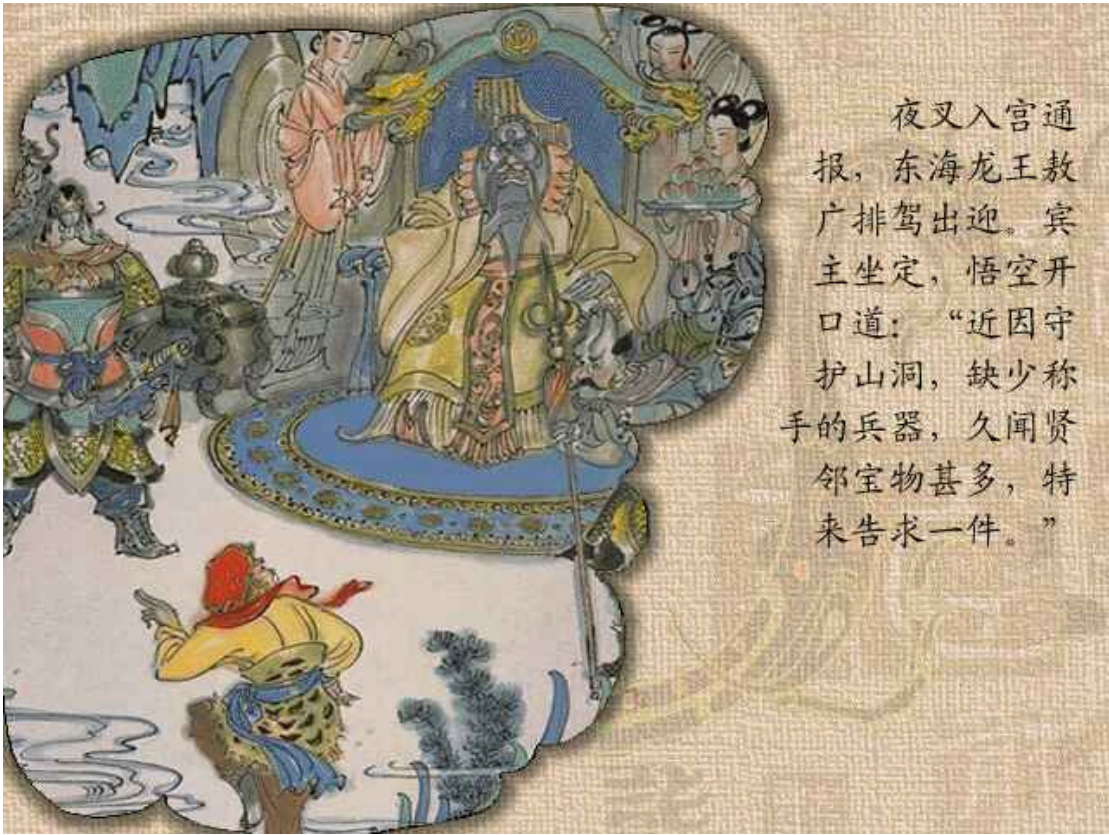 夜叉入宫通
报，东海龙王敖
广排驾出迎。宾
主坐定，悟空开
口道：“近因守
护山洞，缺少称
手的兵器，久闻贤
邻宝物甚多，特
来告求一件。”